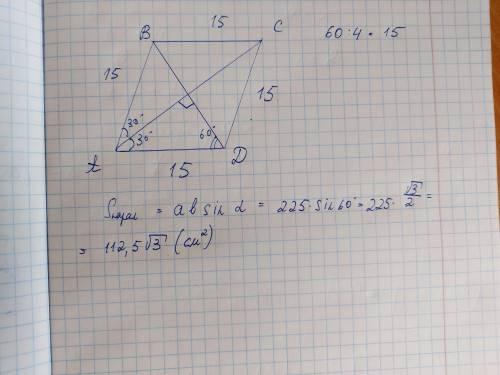 15
B
C
60·4 = 15
15
30°
30°
60°
15
A
15
D
Sпарал = a b sin α = 225·sin 60° = 225·√3/2 =
= 112,5√3 (см²)